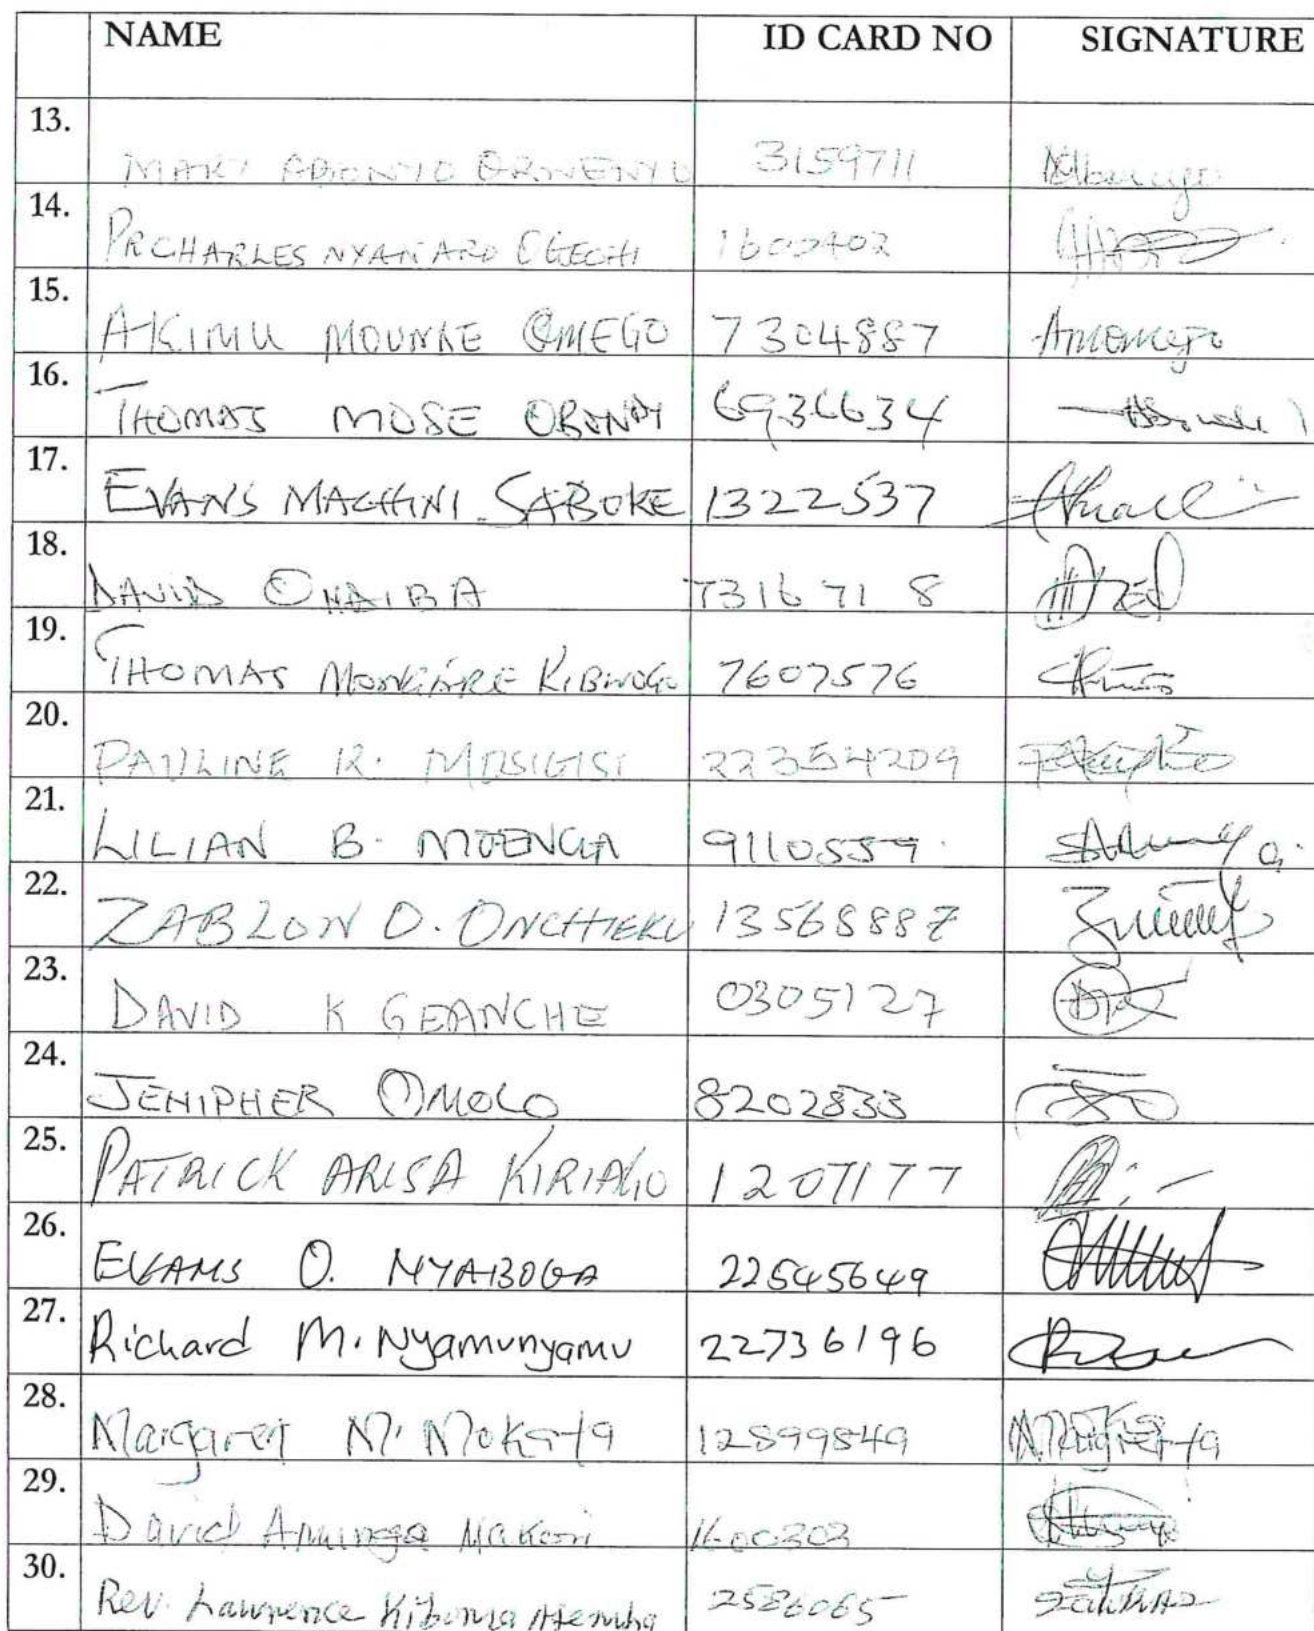 NAME ID CARD NO SIGNATURE
13. MARY 3159711
14. PR CHARLES NYANARO OGECHI 1600402
15. AKIMU MOUNKE OMEGO 7304887
16. THOMAS MOSE 6936634
17. EVANS MAGHINI SABOKE 1322537
18. DAVID 7316718
19. THOMAS MONGARE KIBWOGO 7607576
20. PAULINE R. MOSIGISI 22354209
21. LILIAN B. MOENGA 9110559
22. ZABLON O. ONCHIEKU 13568887
23. DAVID K GEANCHE 0305127
24. JENIPHER OMOLO 8202833
25. PATRICK ARISA KIRIAGO 1207177
26. EVANS O. NYABOGA 22545649
27. Richard M. Nyamunyamu 22736196
28. Margaret M. Mokaya 12899849
29. David Amunga Makori 1600302
30. Rev. Lawrence Kiboma 2586065